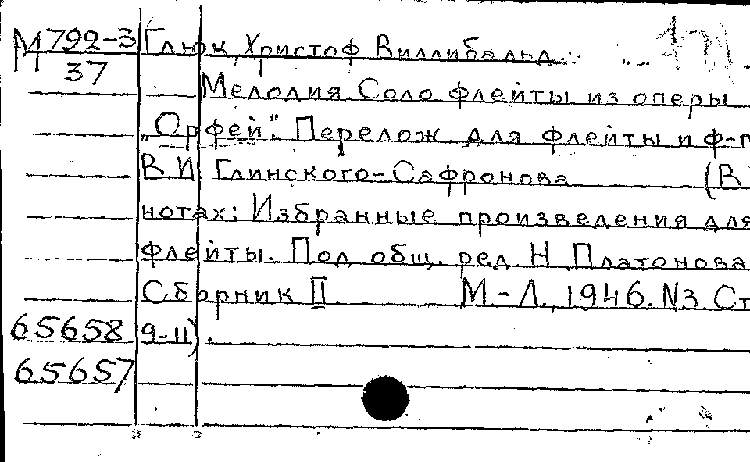 М 792-3 Глюк, Христоф Виллибальд.
37 Мелодия Соло флейты из оперы
„Орфей". Перелож. для флейты и ф-п
В.И. Глинского-Сафронова (В
нотах: Избранные произведения для
флейты. Под общ. ред. Н Платонова
Сборник II М-Л., 1946. №3 Ст
65658 9-11).
65657